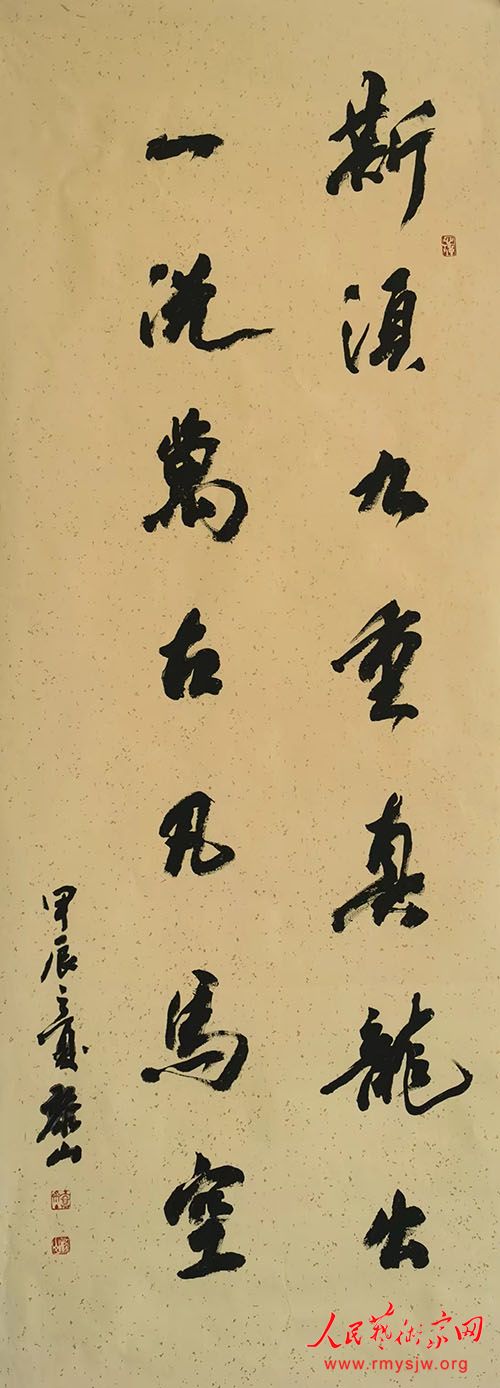 斯須九重真龍出
一洗萬古凡馬空
甲辰之夏
山
人民藝術家网
www.rmysjw.org